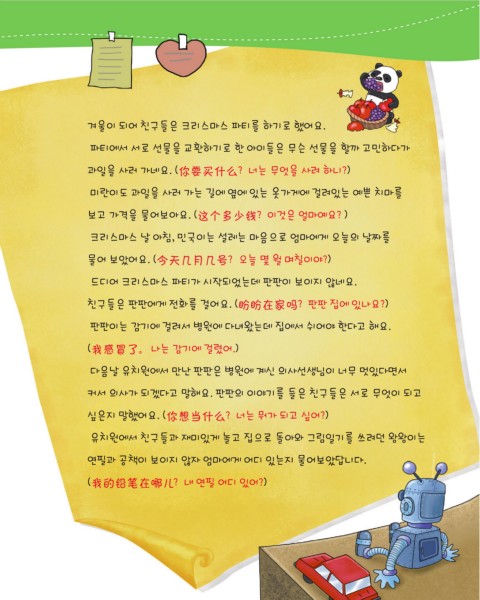 겨울이 되어 친구들은 크리스마스 파티를 하기로 했어요.
파티에서 서로 선물을 교환하기로 한 아이들은 무슨 선물을 할까 고민하다가
과일을 사러 가네요. (你要买什么? 너는 무엇을 사려 하니?)
미란이도 과일을 사러 가는 길에 옆에 있는 옷가게에 걸려있는 예쁜 치마를
보고 가격을 물어보아요. (这个多少钱? 이것은 얼마예요?)
크리스마스 날 아침, 민국이는 설레는 마음으로 엄마에게 오늘의 날짜를
물어 보았어요. (今天几月几号? 오늘 몇 월 며칠이야?)
드디어 크리스마스 파티가 시작되었는데 판판이 보이지 않네요.
친구들은 판판에게 전화를 걸어요. (盼盼在家吗? 판판 집에 있나요?)
판판이는 감기에 걸려서 병원에 다녀왔는데 집에서 쉬어야 한다고 해요.
(我感冒了。 나는 감기에 걸렸어.)
다음날 유치원에서 만난 판판은 병원에 계신 의사선생님이 너무 멋있다면서
커서 의사가 되겠다고 말해요. 판판의 이야기를 들은 친구들은 서로 무엇이 되고
싶은지 말했어요. (你想当什么? 너는 뭐가 되고 싶어?)
유치원에서 친구들과 재미있게 놀고 집으로 돌아와 그림일기를 쓰려던 왕왕이는
연필과 공책이 보이지 않자 엄마에게 어디 있는지 물어보았답니다.
(我的铅笔在哪儿? 내 연필 어디 있어?)